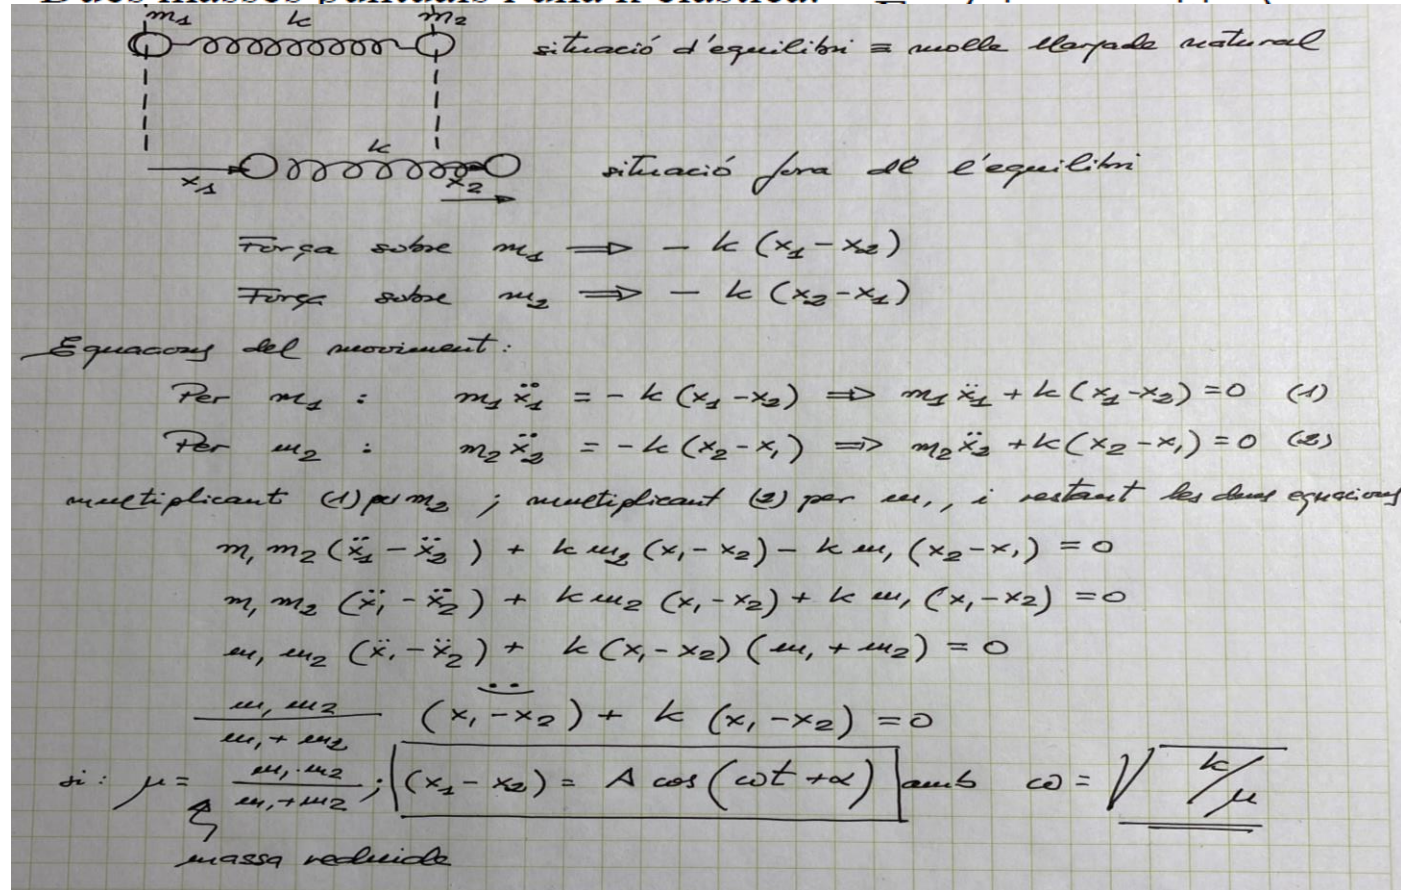 m₁ k m₂
situació d'equilibri = molle llargada natural
k
x₁ x₂
situació fora de l'equilibri
Força sobre m₁ ⟹ - k (x₁ - x₂)
Força sobre m₂ ⟹ - k (x₂ - x₁)
Equacions del moviment:
Per m₁ : m₁ẍ₁ = - k (x₁ - x₂) ⟹ m₁ẍ₁ + k (x₁ - x₂) = 0 (1)
Per m₂ : m₂ẍ₂ = - k (x₂ - x₁) ⟹ m₂ẍ₂ + k (x₂ - x₁) = 0 (2)
multiplicant (1) per m₂ ; multiplicant (2) per m₁, i restant les dues equacions
m₁ m₂ (ẍ₁ - ẍ₂) + k m₂ (x₁ - x₂) - k m₁ (x₂ - x₁) = 0
m₁ m₂ (ẍ₁ - ẍ₂) + k m₂ (x₁ - x₂) + k m₁ (x₁ - x₂) = 0
m₁ m₂ (ẍ₁ - ẍ₂) + k (x₁ - x₂) (m₁ + m₂) = 0
m₁ m₂ / m₁ + m₂ (x₁ - x₂)¨ + k (x₁ - x₂) = 0
si: μ = m₁ · m₂ / m₁ + m₂ ; (x₁ - x₂) = A cos (ωt + α) amb ω = √k/μ
massa reduida